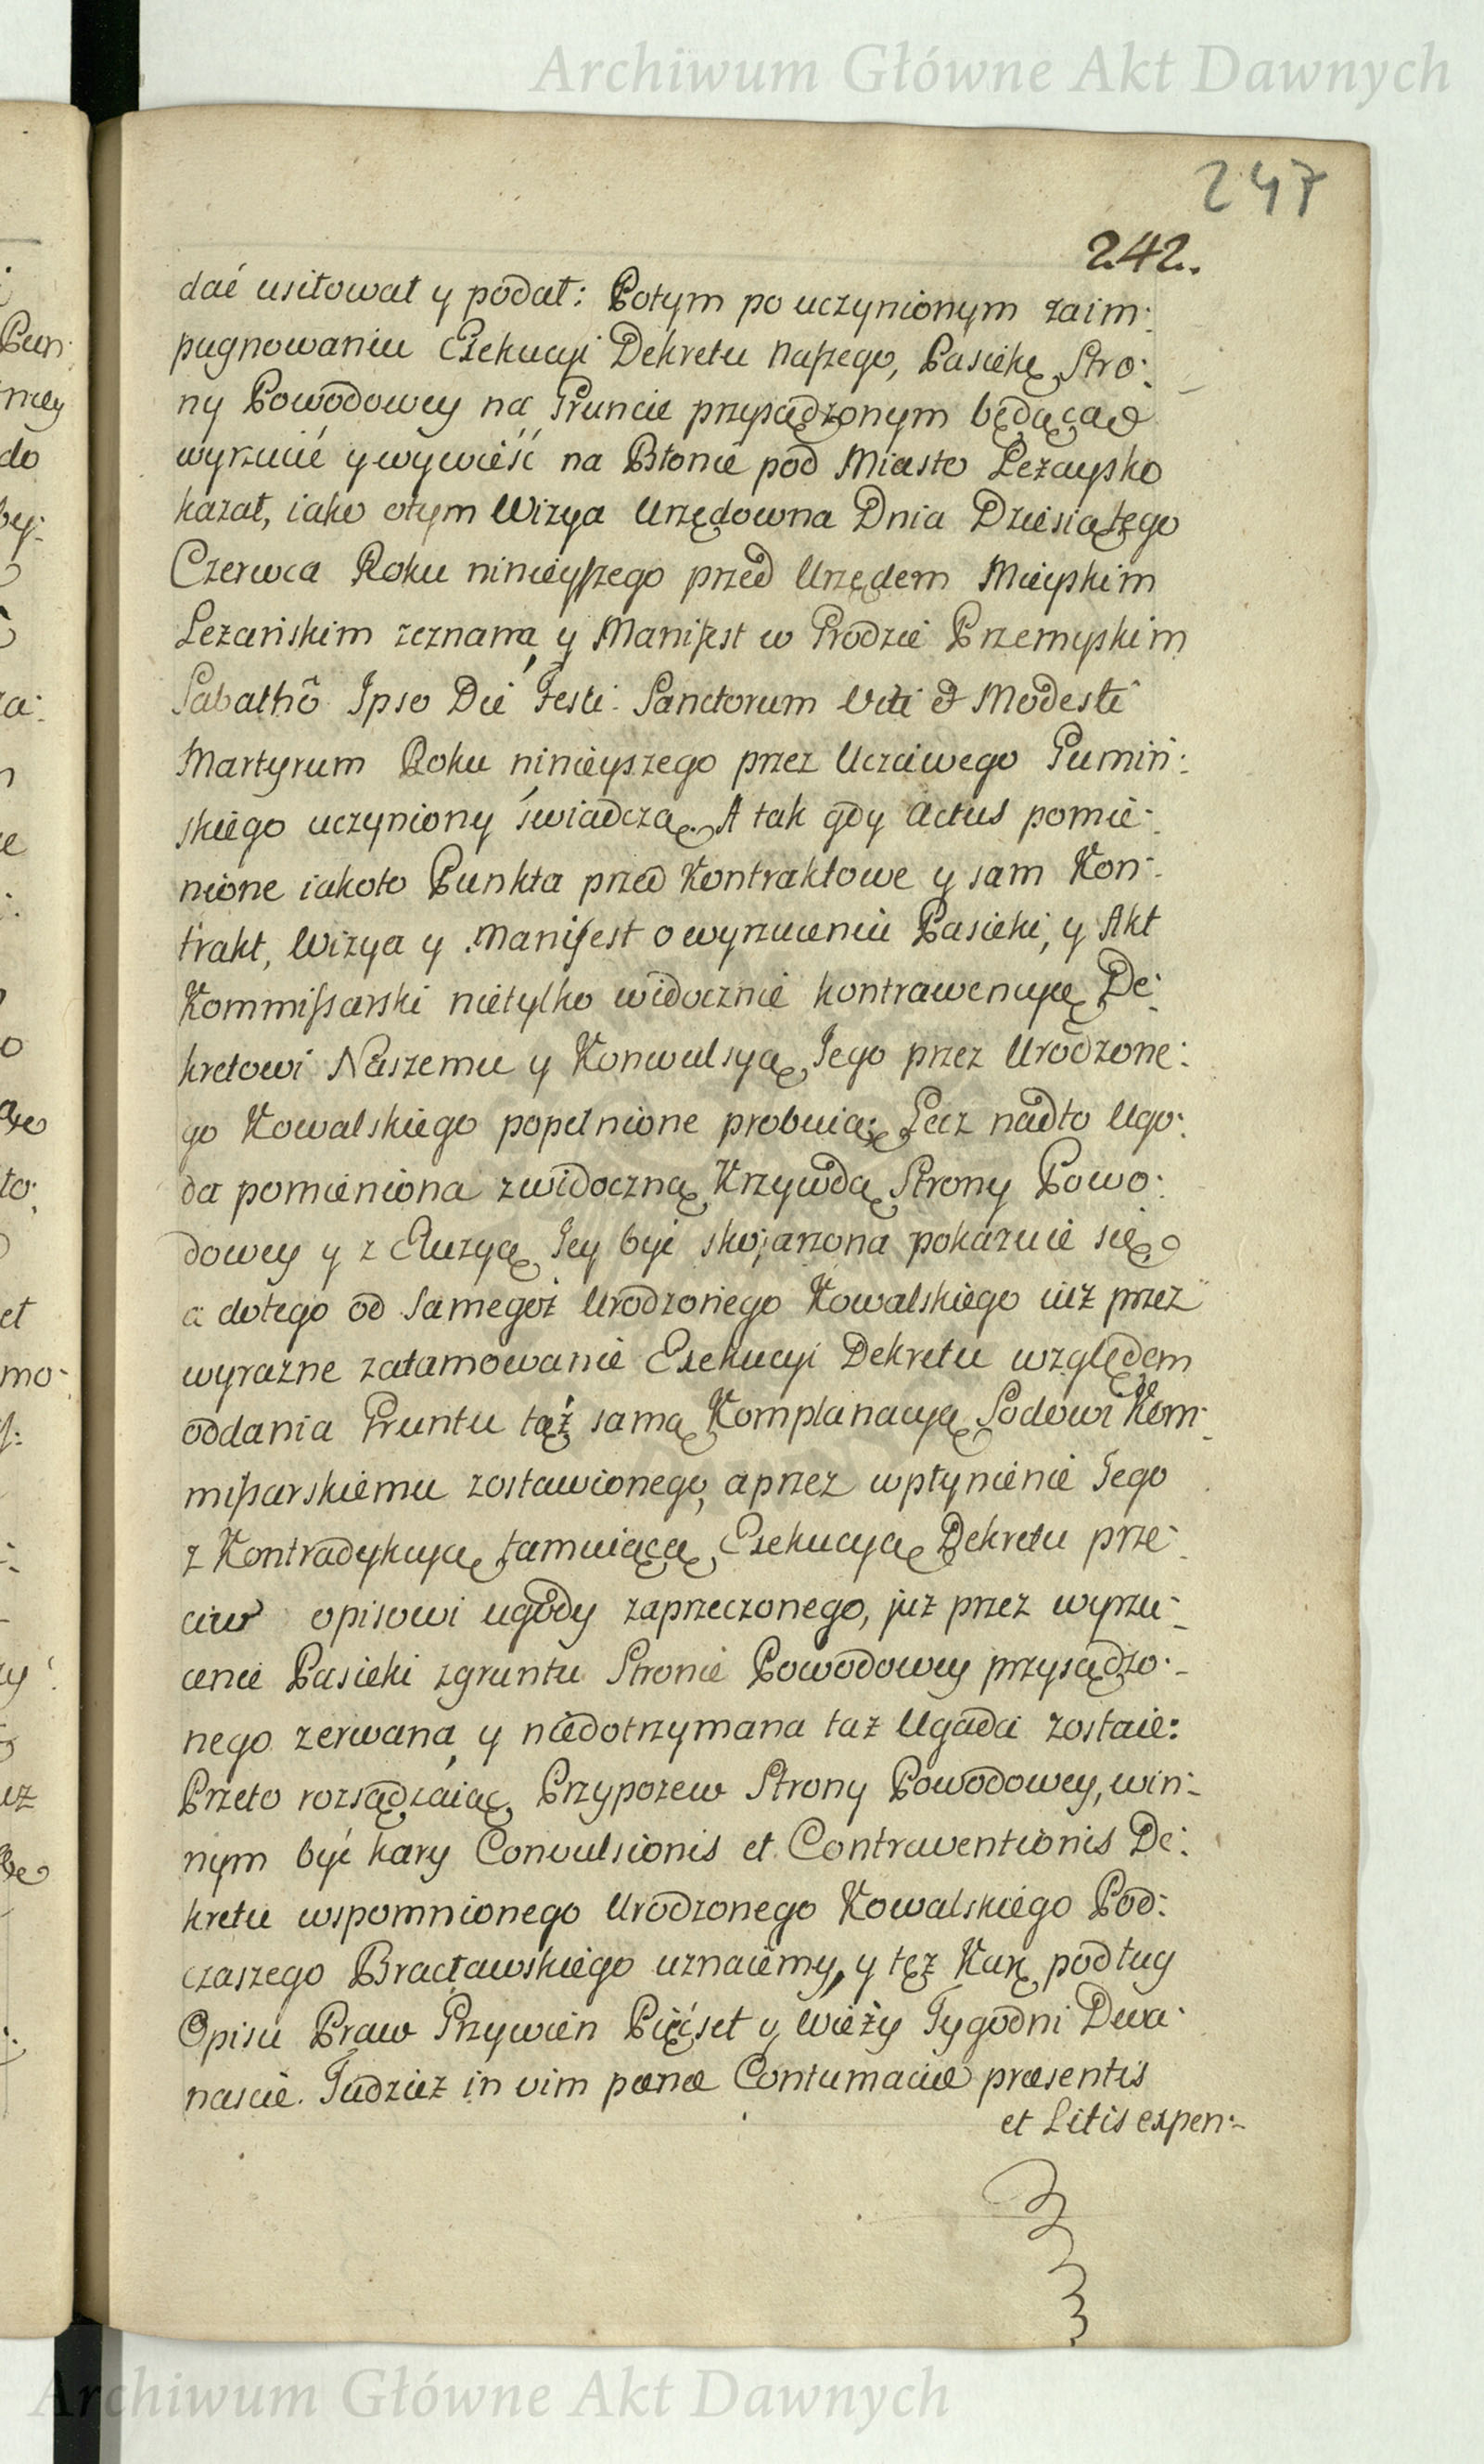 Archiwum Główne Akt Dawnych
247
242.
dać usiłował y podał: Potym po uczynionym zaim:
pugnowaniu Exekucyi Dekretu Naszego, Pasiekę Stro:
ny Powodowey na Gruncie przysądzonym będącą
wyrzucić y wywieść na Błonie pod Miasto Leżaysko
kazał, iako otym Wizya Urzędowna Dnia Dziesiątego
Czerwca Roku ninieyszego przed Urzędem Mieyskim
Leżańskim zeznana, y Manifest w Grodzie Przemyskim
Sabathô Ipso Die Festi Sanctorum Viti et Modesti
Martyrum Roku ninieyszego przez Uczciwego Gumiń:
skiego uczyniony świadczą. A tak gdy Actus pomie:
nione iakoto Punkta przed Kontraktowe y sam Kon:
trakt, Wizya y Manifest o wyrzuceniu Pasieki, y Akt
Kommissarski nietylko widocznie kontrawencyę De:
kretowi Naszemu y Konwulsyą Jego przez Urodzone:
go Kowalskiego popełnione probuią; Lecz nadto Ugo:
da pomieniona z widoczną Krzywdą Strony Powo:
dowey y z Eluzyą Jey być skojarzona pokazuie się,
a dotego od samegoż Urodzonego Kowalskiego iuż przez
wyrazne zatamowanie Exekucyi Dekretu względem
oddania Gruntu tąż samą Komplanacyą Sądowi Kom:
missarskiemu zostawionego, a przez wpłynienie Jego
z Kontradykcyą tamuiącą Exekucyą Dekretu prze:
ciw opisowi ugody zaprzeczonego, już przez wyrzu:
cenie Pasieki z gruntu Stronie Powodowey przysądzo:
nego zerwana, y niedotrzymana taż Ugada zostaie:
Przeto rozsądzaiąc Przypozew Strony Powodowey, win:
nym być kary Convulsionis et Contraventionis De:
kretu wspomnionego Urodzonego Kowalskiego Pod:
czaszego Bracławskiego uznaiemy, y tęż Karę podług
Opisu Praw Grzywien Pięćset y Wieży Tygodni Dwa:
naście. Tudzież in vim pænæ Contumaciæ præsentis
et Litis expen:
Archiwum Główne Akt Dawnych